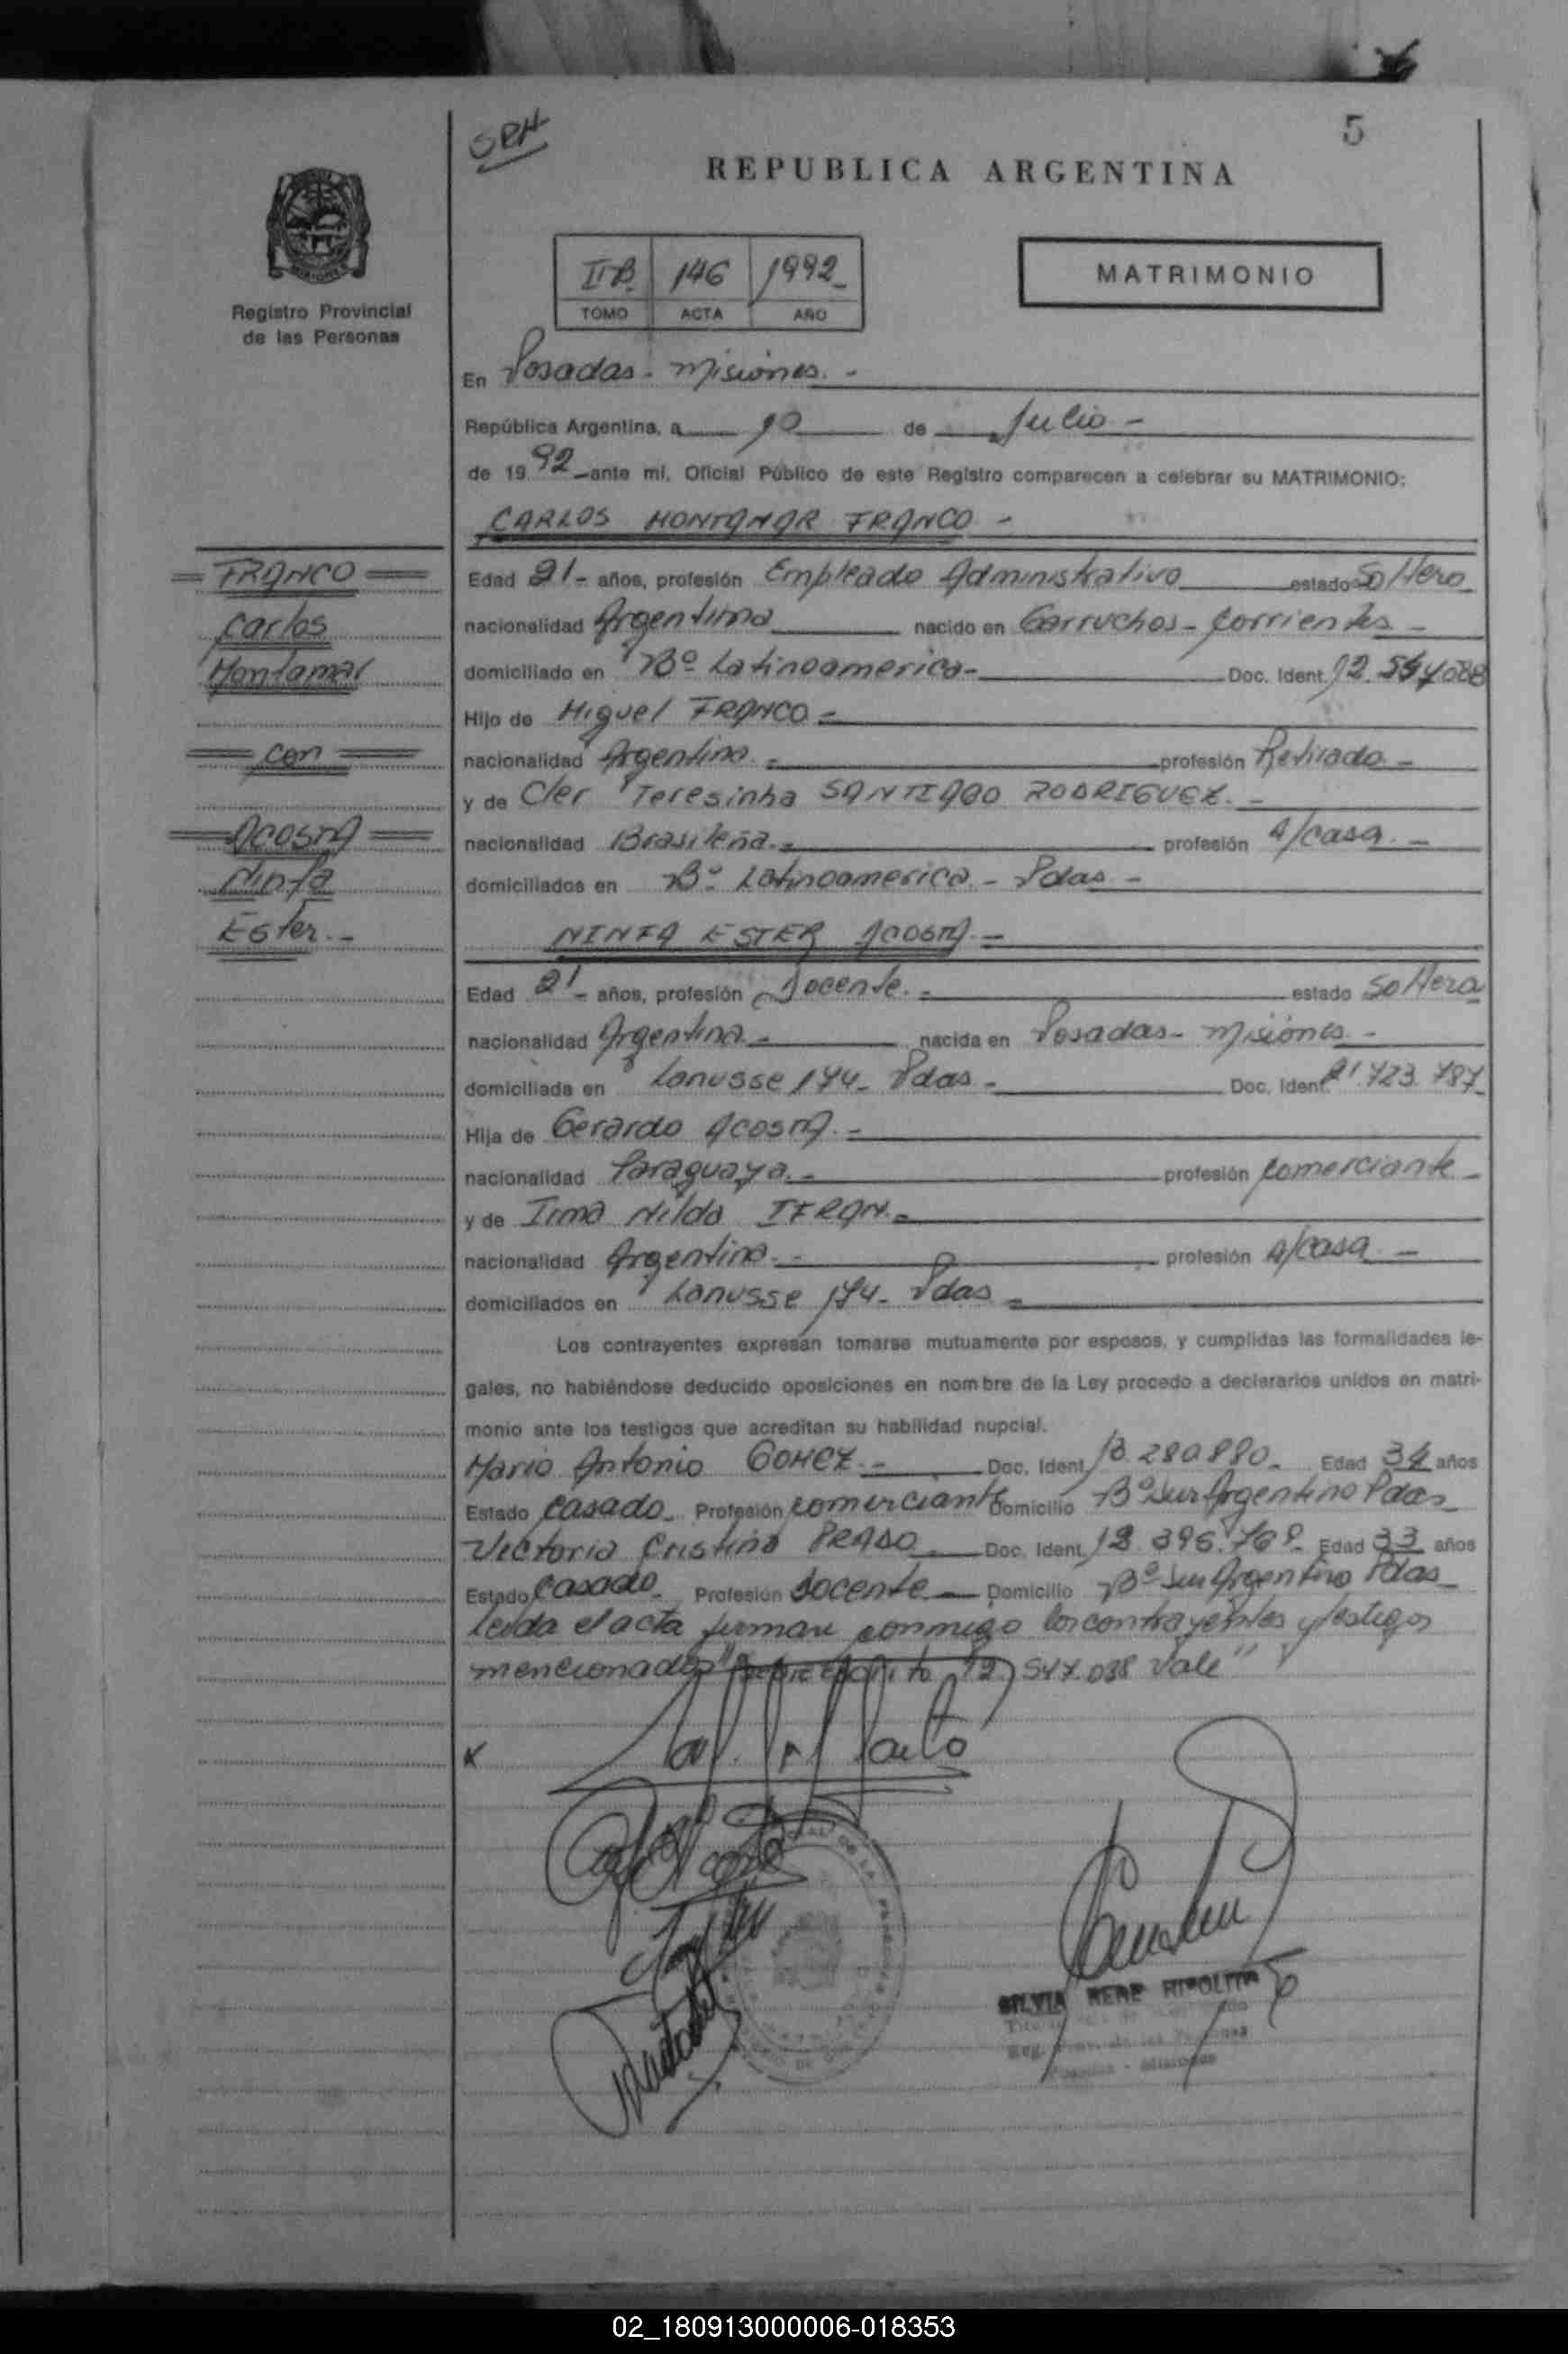 SRH
5
REPUBLICA ARGENTINA
IIB. 146 1992
TOMO ACTA AÑO
MATRIMONIO
Registro Provincial
de las Personas
En Posadas - Misiones. -
República Argentina, a 10 de Julio -
de 1992 ante mi, Oficial Público de este Registro comparecen a celebrar su MATRIMONIO:
CARLOS MONTAMAR FRANCO -
FRANCO
Carlos
Montamar
con
ACOSTA
Ninfa
Ester. -
Edad 21 - años, profesión Empleado Administrativo estado Soltero
nacionalidad Argentina nacido en Garruchos - Corrientes -
domiciliado en Bº Latinoamerica - Doc. Ident. 12.
Hijo de Miguel FRANCO -
nacionalidad Argentina. - profesión Retirado -
y de Cler Teresinha SANTIAGO RODRIGUEZ. -
nacionalidad Brasileña. - profesión a/casa. -
domiciliados en Bº Latinoamerica - Pdas -
NINFA ESTER ACOSTA. -
Edad 21 - años, profesión Docente. - estado Soltera
nacionalidad Argentina. - nacida en Posadas - Misiones -
domiciliada en Lanusse 174 - Pdas - Doc. Ident. 21.723.787
Hija de Gerardo ACOSTA. -
nacionalidad Paraguaya. - profesión comerciante -
y de Irma Nilda TERAN. -
nacionalidad Argentina. - profesión a/casa. -
domiciliados en Lanusse 174 - Pdas -
Los contrayentes expresan tomarse mutuamente por esposos, y cumplidas las formalidades le-
gales, no habiéndose deducido oposiciones en nombre de la Ley procedo a declararlos unidos en matri-
monio ante los testigos que acreditan su habilidad nupcial.
Mario Antonio GOMEZ. - Doc. Ident. 13.280.880 - Edad 34 años
Estado casado - Profesión comerciante Domicilio Bº Sur Argentino Pdas
Victoria Cristina PRADO Doc. Ident. 12.396.769 - Edad 33 años
Estado casado - Profesión docente - Domicilio Bº Sur Argentino Pdas
Leida el acta firman conmigo los contrayentes y testigos
mencionados "sobre escrito 12. Vale"
SILVIA RENE HIPOLITO
02_180913000006-018353